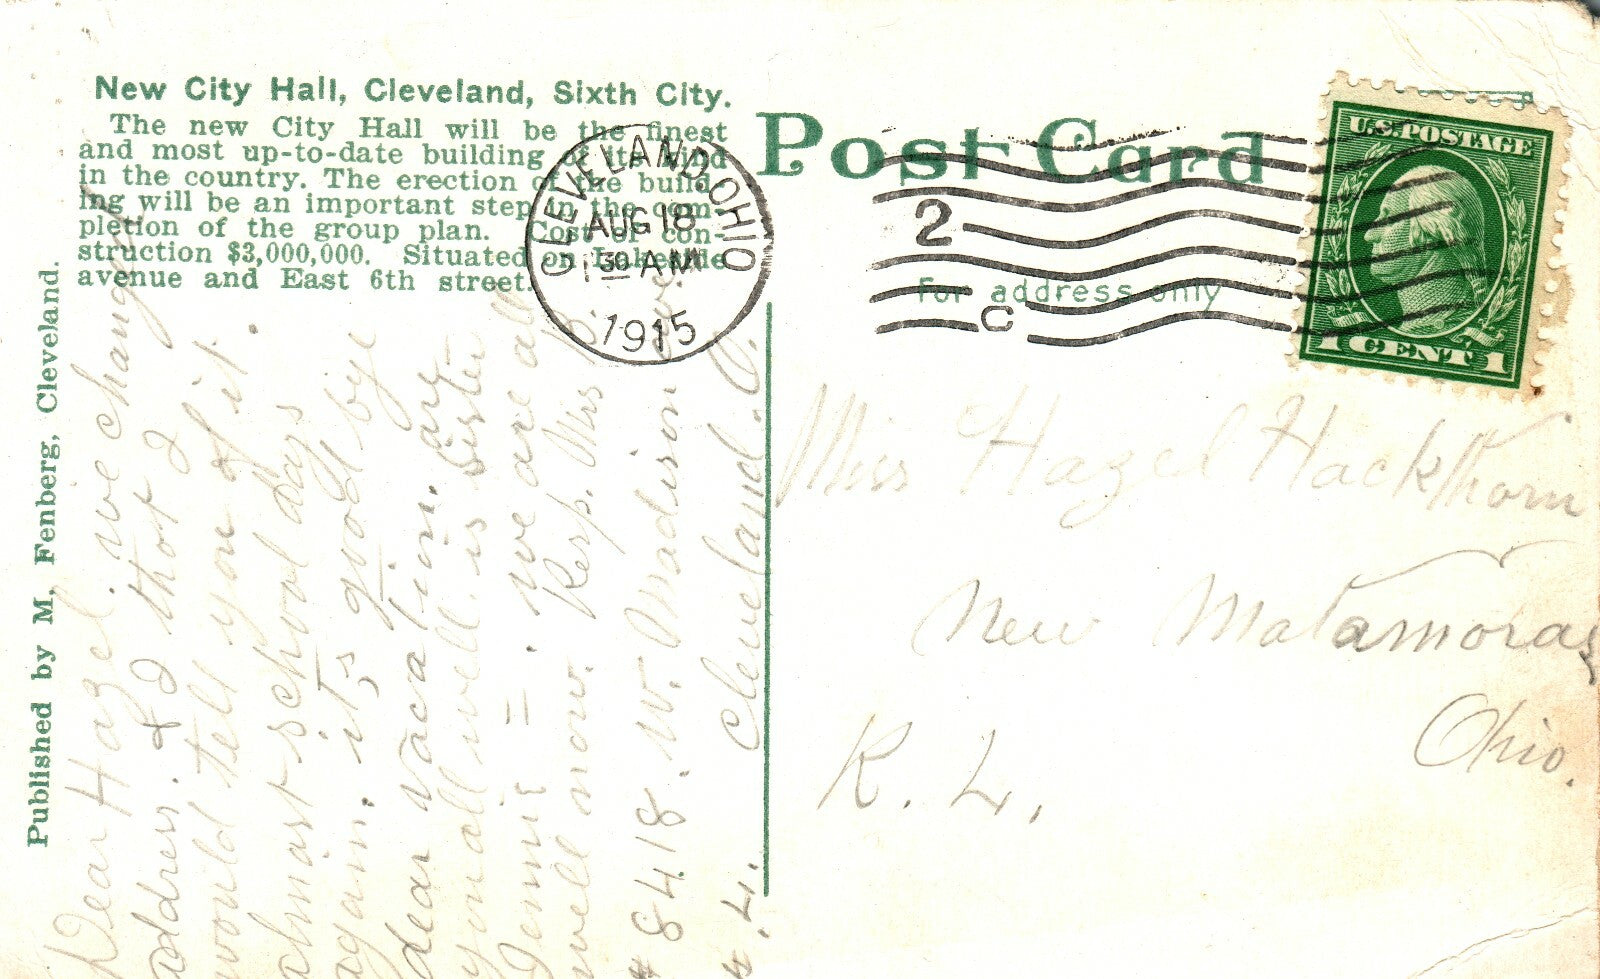 New City Hall, Cleveland, Sixth City.
The new City Hall will be the finest
and most up-to-date building of its kind
in the country. The erection of the build-
ing will be an important step in the com-
pletion of the group plan. Cost of con-
struction $3,000,000. Situated on Lakeside
avenue and East 6th street.
Published by M. Fenberg, Cleveland.
Post Card
For address only
CLEVELAND, OHIO
AUG 18
1 30 AM
1915
2
C
U.S. POSTAGE
1 CENT 1
Dear Hazel. we changed
address. & I thot I
would tell you of it.
almost school days
again. it,s good bye
dear vacation. are
you all well. is sister
we are all
well now. Resp. Mrs B.
# 8418. W. Madison ave.
Cleveland. O.
Miss Hazel Hackthorn
New Matamoras
Ohio.
R. 4.